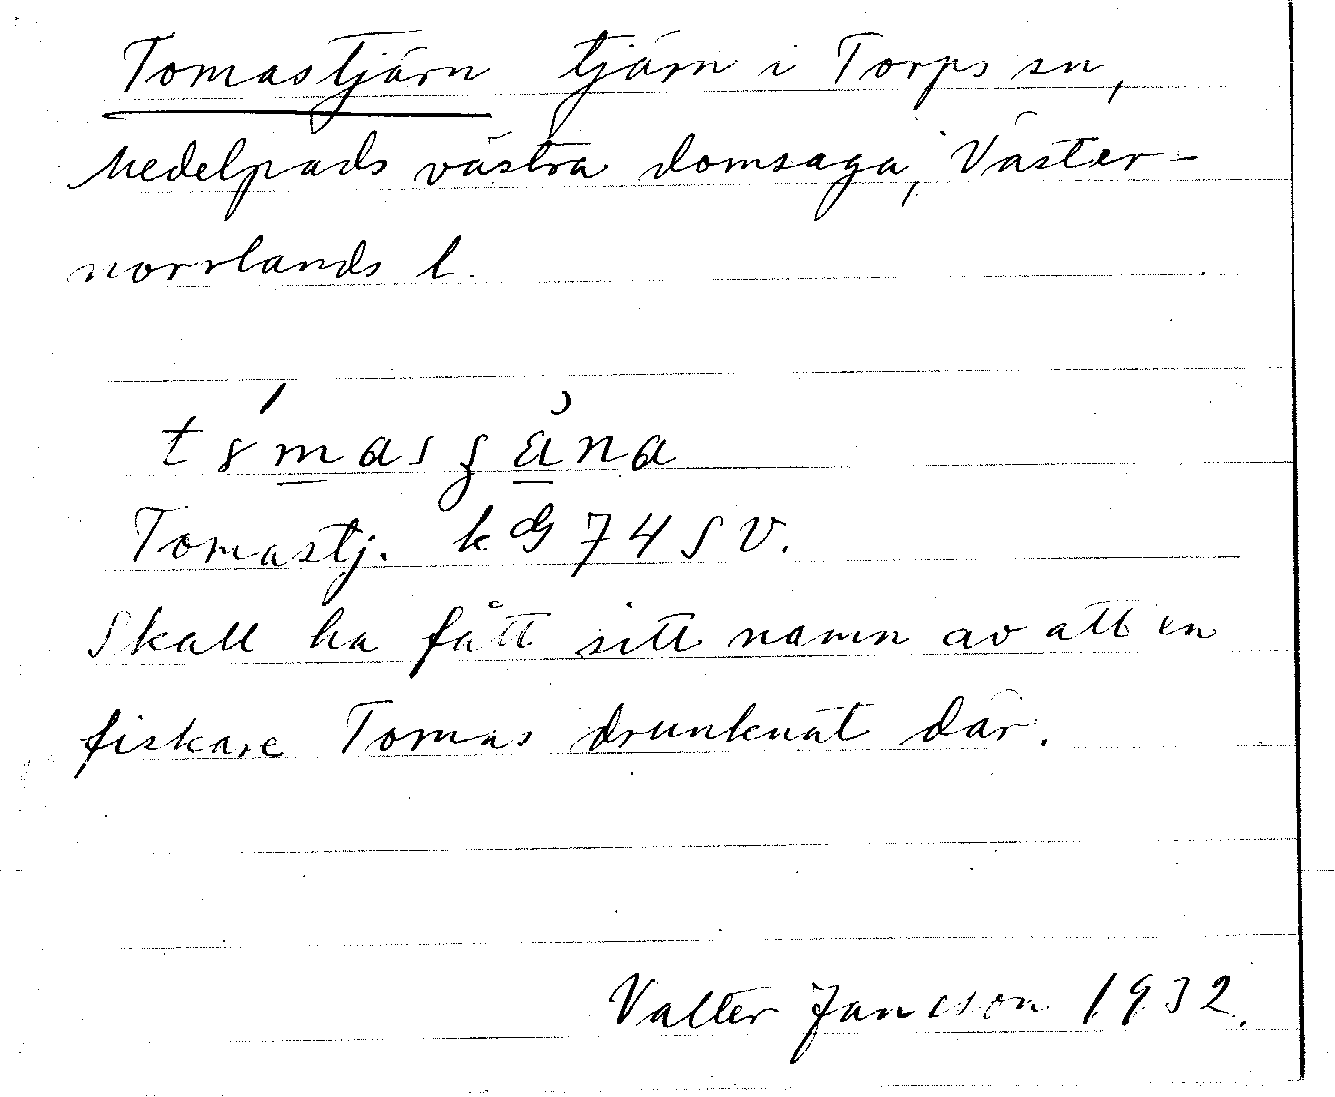 Tomastjärn tjärn i Torps sn,
Medelpads västra domsaga, Väster-
norrlands l.
Tomastj. kG 74 SV.
Skall ha fått sitt namn av att en
fiskare Tomas drunknat där.
Valter Jansson 1932.